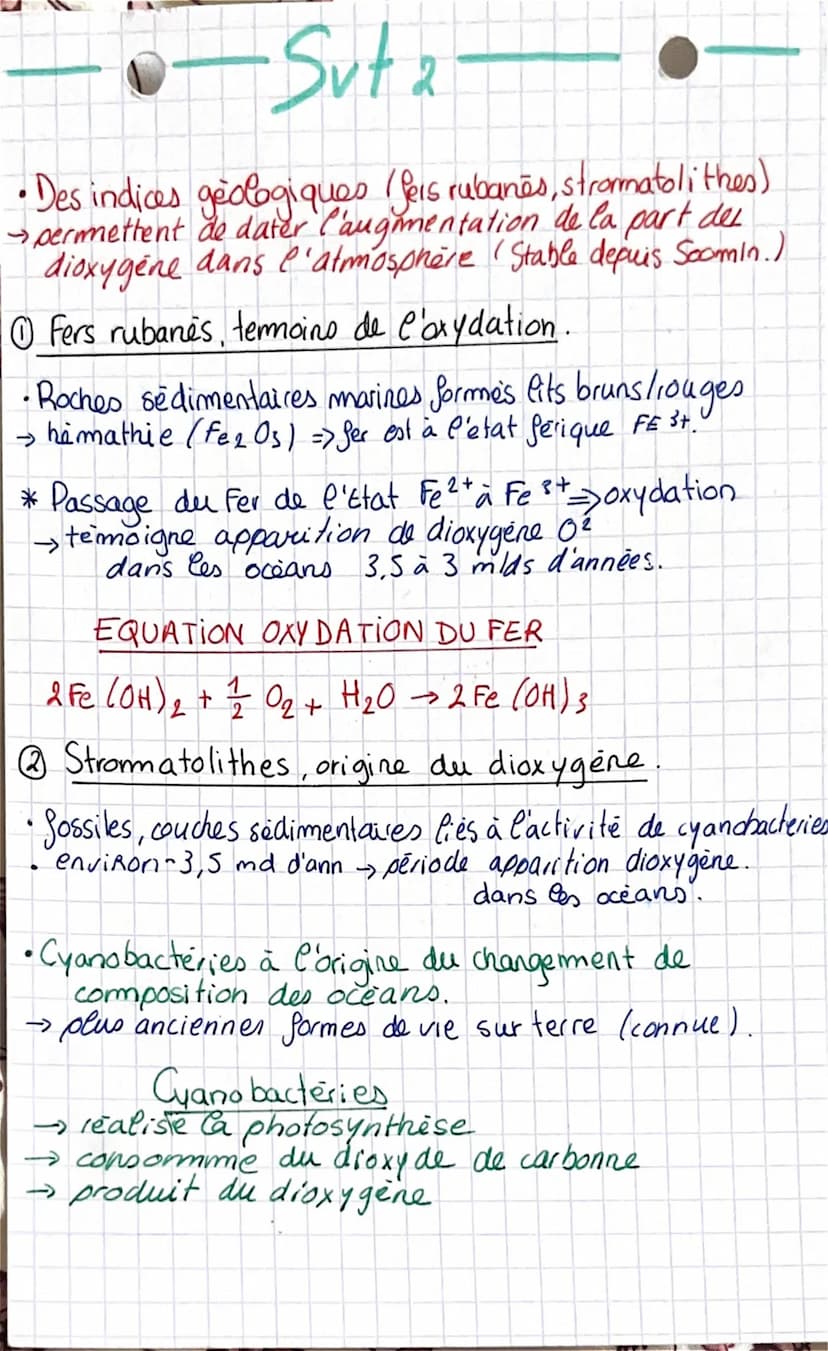 Svt 2
• Des indices géologiques (fers rubanés, stromatolithes)
→ permettent de dater l'augmentation de la part des
dioxygène dans l'atmosphère (Stable depuis 500mln.)
① Fers rubanés, temoins de l'oxydation.
• Roches sédimentaires marines formés lits bruns/rouges
→ hémathie (Fe2O3) => fer est à l'état férique FE 3+.
* Passage du Fer de l'Etat Fe2+ à Fe 3+ => oxydation
→ témoigne apparition de dioxygène O²
dans les océans 3,5 à 3 mlds d'années.
EQUATION OXYDATION DU FER
2Fe(OH)2 + 1/2 O2 + H2O → 2Fe(OH)3
② Stromatolithes, origine du dioxygène.
• fossiles, couches sédimentaires liés à l'activité de cyanobacteries
• environ - 3,5 md d'ann → période apparition dioxygène.
dans les océans.
• Cyanobactéries à l'origine du changement de
composition des océans.
→ plus anciennes formes de vie sur terre (connue).
Cyanobactéries
→ réalise la photosynthèse
→ consomme du dioxyde de carbonne
→ produit du dioxygène